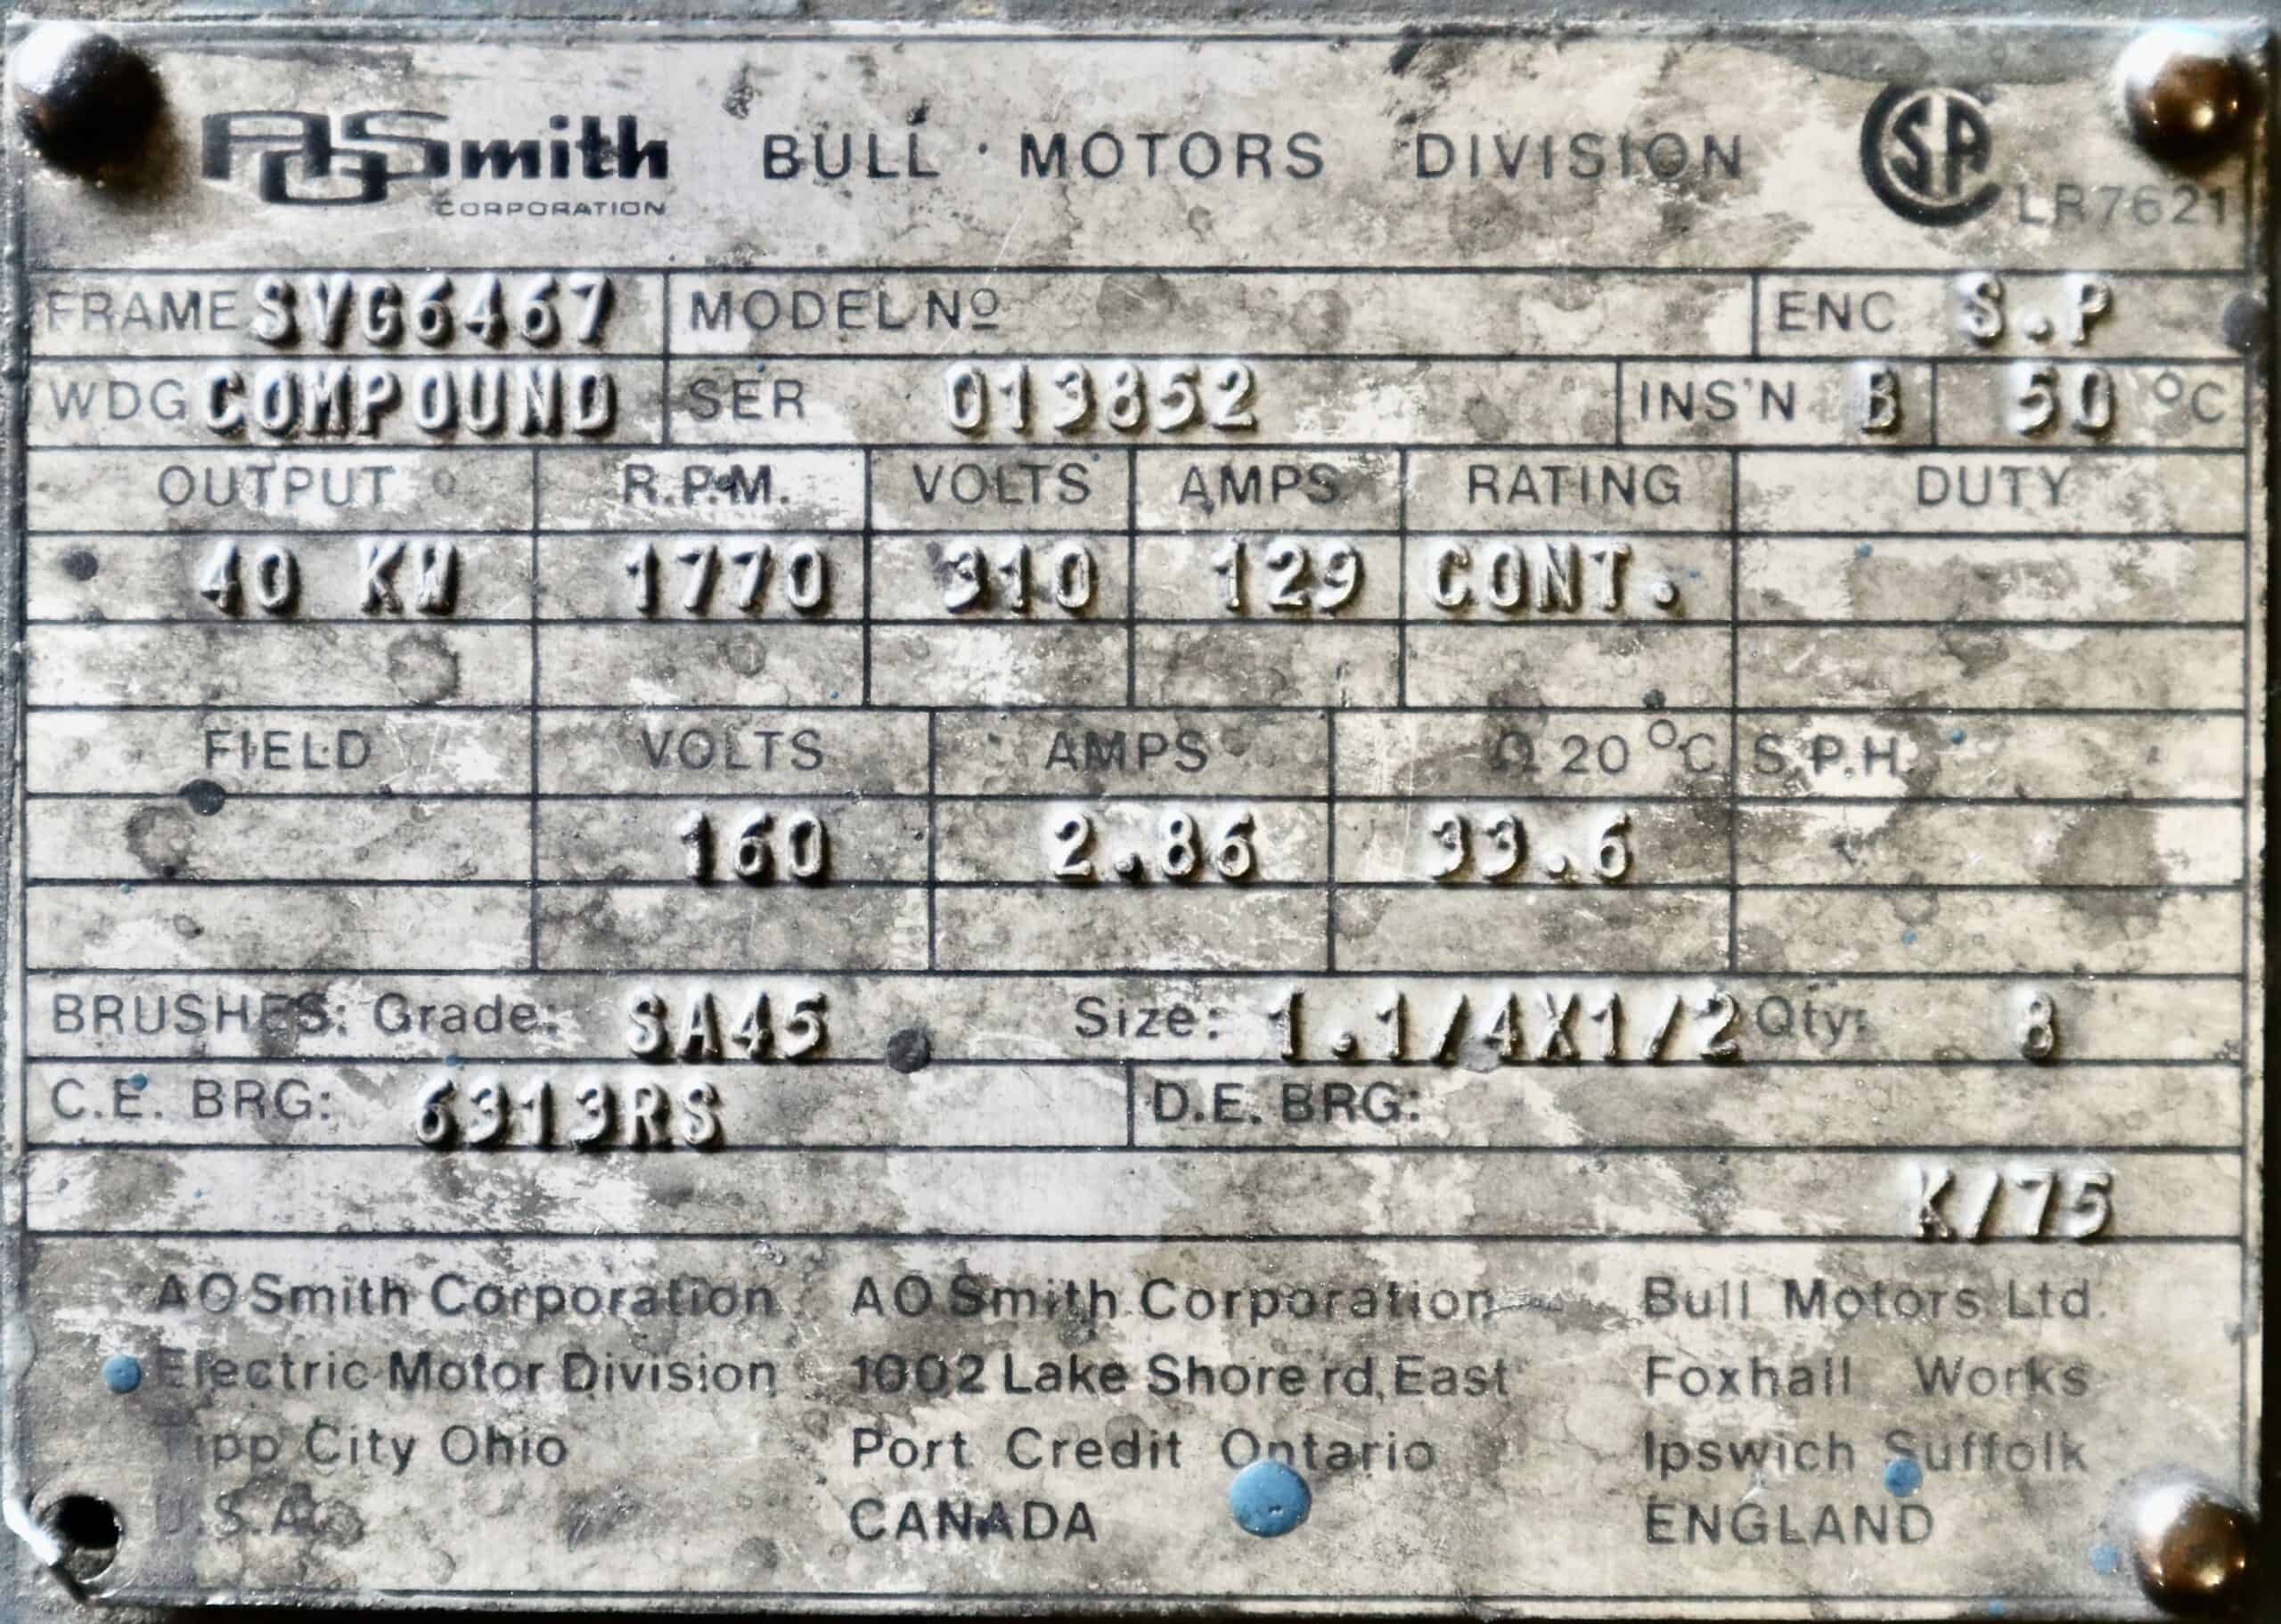 AOSmith BULL · MOTORS DIVISION CSA
CORPORATION LR7621
FRAME SVG6467 MODEL Nº ENC S.P
WDG COMPOUND SER 013852 INS'N B 50 °C
OUTPUT R.P.M. VOLTS AMPS RATING DUTY
40 KW 1770 310 129 CONT.
FIELD VOLTS AMPS Ω 20 °C S.P.H.
160 2.86 33.6
BRUSHES: Grade: SA45 Size: 1.1/4X1/2 Qty: 8
C.E. BRG: 6313RS D.E. BRG:
K/75
AO Smith Corporation AO Smith Corporation Bull Motors Ltd.
Electric Motor Division 1002 Lake Shore rd, East Foxhall Works
Tipp City Ohio Port Credit Ontario Ipswich Suffolk
U.S.A. CANADA ENGLAND